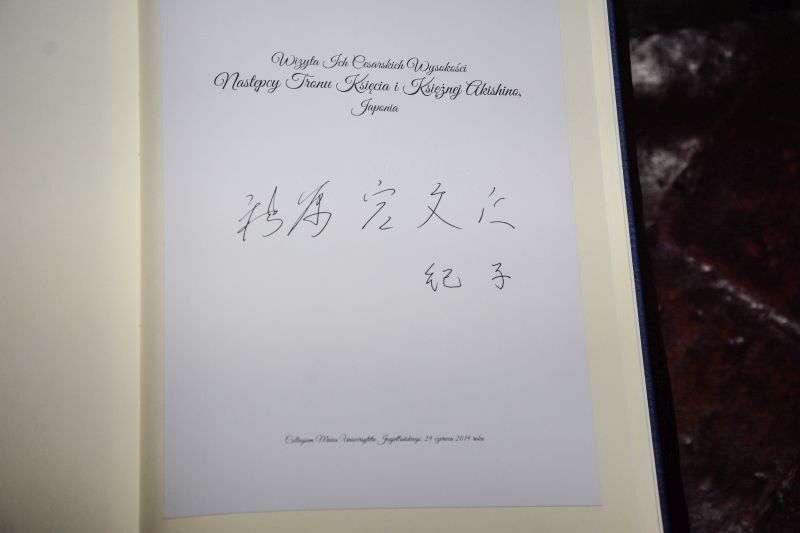 Wizyta Ich Cesarskich Wysokości
Następcy Tronu Księcia i Księżnej Akishino,
Japonia
秋篠宮文仁
紀子
Collegium Maius Uniwersytetu Jagiellońskiego, 29 czerwca 2019 roku